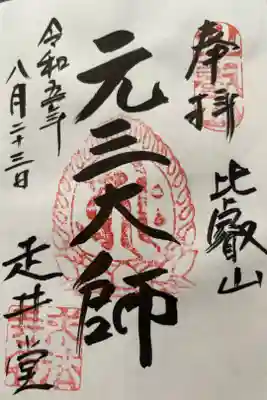 奉拝
比叡山
元三大師
走井堂
令和五年
八月二十三日